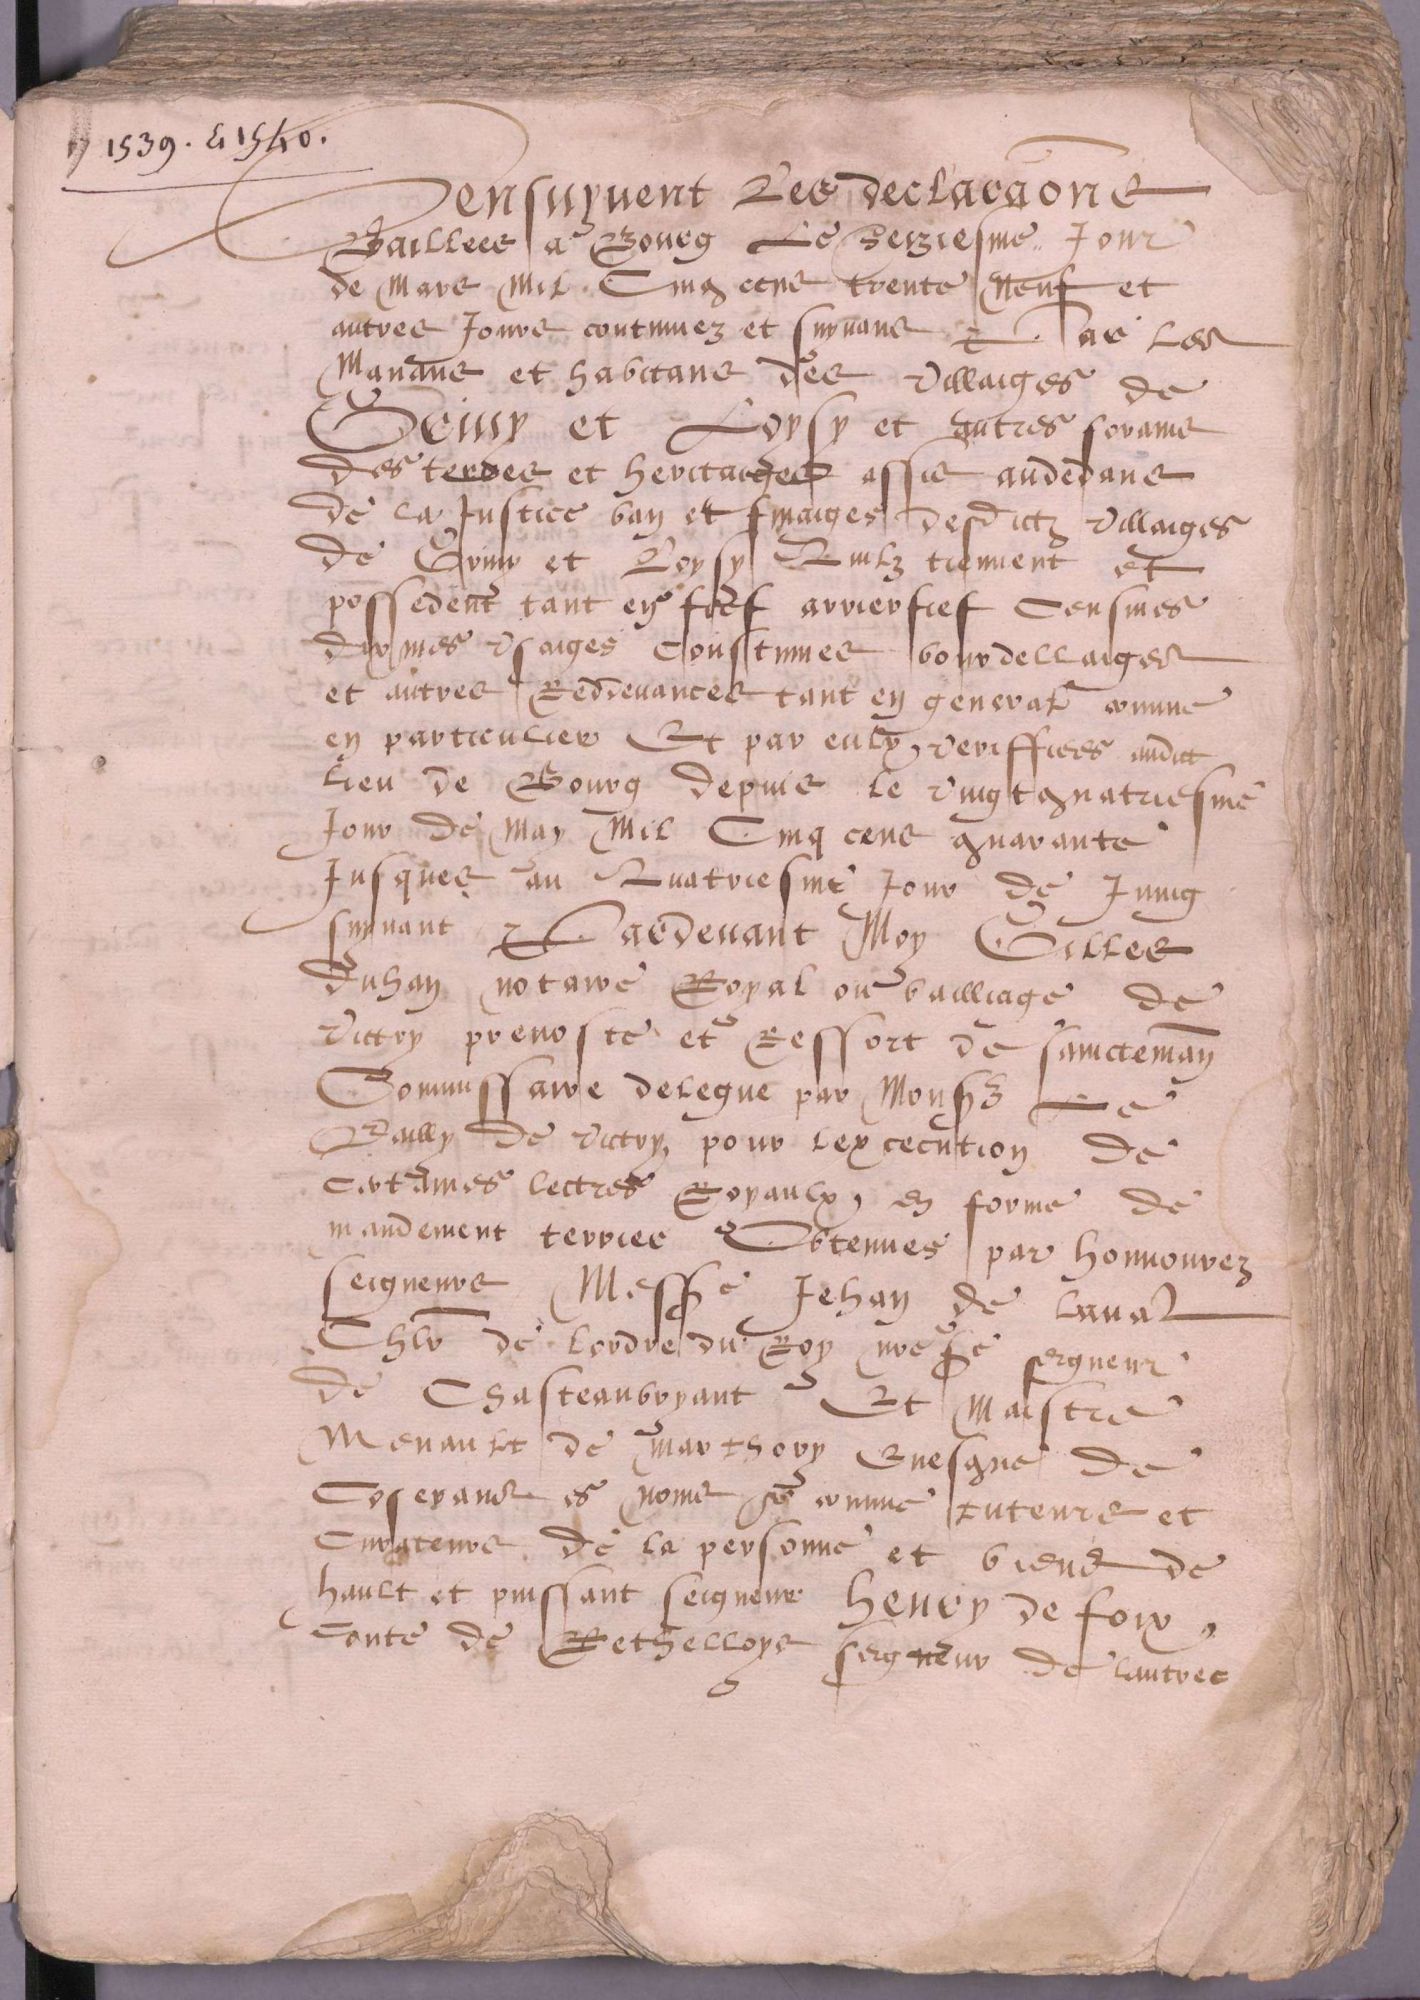 1539. & 1540.
Sensuyvent Les declaraõns
Baillees a Bourg Le Seiziesme Jour
de Mars Mil Cinq cens trente Neuf et
autres Jours continuez et suyvans Par Les
Manans et habitans des villaiges de
Grivy et Loysy et autres forains
des terres et heritaiges assis audedans
de la Justice ban et finaiges desdictz villaiges
de Grivy et Loysy Quilz tiennent et
possedent tant en fief arrierfief Censives
dixmes Usaiges Coustumes bourdellaiges
et autres Redevances tant en general comme
en particulier Et par eulx veriffiees audict
Lieu de Bourg depuis le vingtquatriesme
Jour de May Mil Cinq cens quarante
Jusques au Quatriesme Jour de Juing
suyvant Pardevant Moy Gilles
duhan notaire Royal ou bailliage de
Victry prevoste et Ressort de saincteman
Commissaire delegue par Monsr Le
Bailly de Victry pour lexcecution de
certaines lectres Royaulx en forme de
mandement terrier Obtenues par honnourez
seigneurs Messre Jehan de Laval
Chlr de Lordre du Roy nre Sre seigneur
de Chasteaubryant Et Maistre
Menault de Marthory Evesque de
Coserans es noms et comme tuteurs et
Curateurs de la personne et biens de
hault et puissant seigneur Henry de foix
Conte de Rethelloys seigneur de lautrec